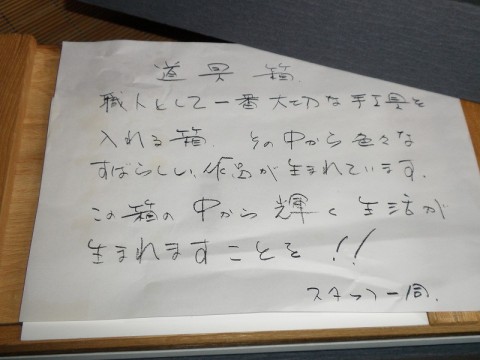 道具箱
職人として一番大切な手工具を
入れる箱 その中から色々な
すばらしい作品が生まれています.
この箱の中から輝く生活が
生まれますことを!!
スタッフ一同.